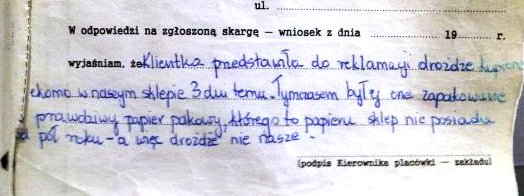 ul.
W odpowiedzi na zgłoszoną skargę — wniosek z dnia 19 r.
wyjaśniam, że Klientka przedstawiła do reklamacji drożdże kupione
rzekomo w naszym sklepie 3 dni temu. Tymczasem były one zapakowane
w prawdziwy papier pakowy, którego to papieru sklep nie posiada
od pół roku - a więc drożdże nie nasze.
(podpis Kierownika placówki — zakładu)